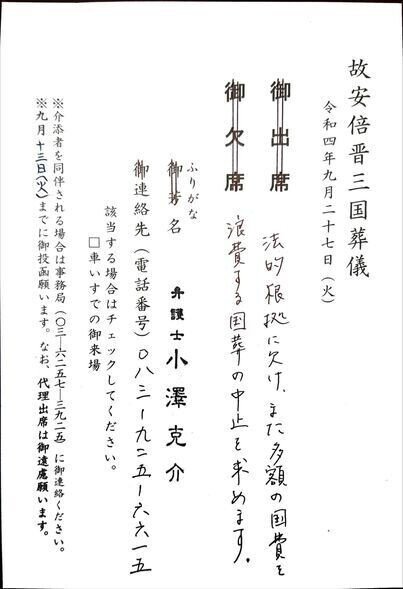 故安倍晋三国葬儀
令和四年九月二十七日（火）
御出席
法的根拠に欠け、また多額の国費を
御欠席
浪費する国葬の中止を求めます。
ふりがな
御芳名 弁護士 小澤克介
御連絡先（電話番号）〇八三ー九二五ー六六一五
該当する場合はチェックしてください。
□車いすでの御来場
※介添者を同伴される場合は事務局（〇三ー六二五七ー三九二五）に御連絡ください。
※九月十三日（火）までに御投函願います。なお、代理出席は御遠慮願います。